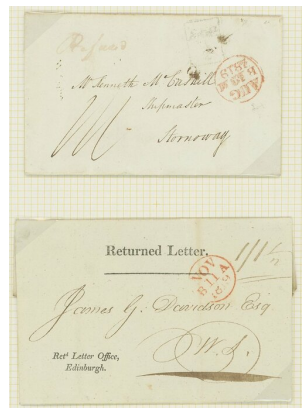 Refused
Mr Kenneth McCaskill
Shipmaster
Stornoway
AUG
B 13 M
1818
Returned Letter.
NOV
B 11 A
James G. Davidson Esq
W.S.
Retd Letter Office,
Edinburgh.